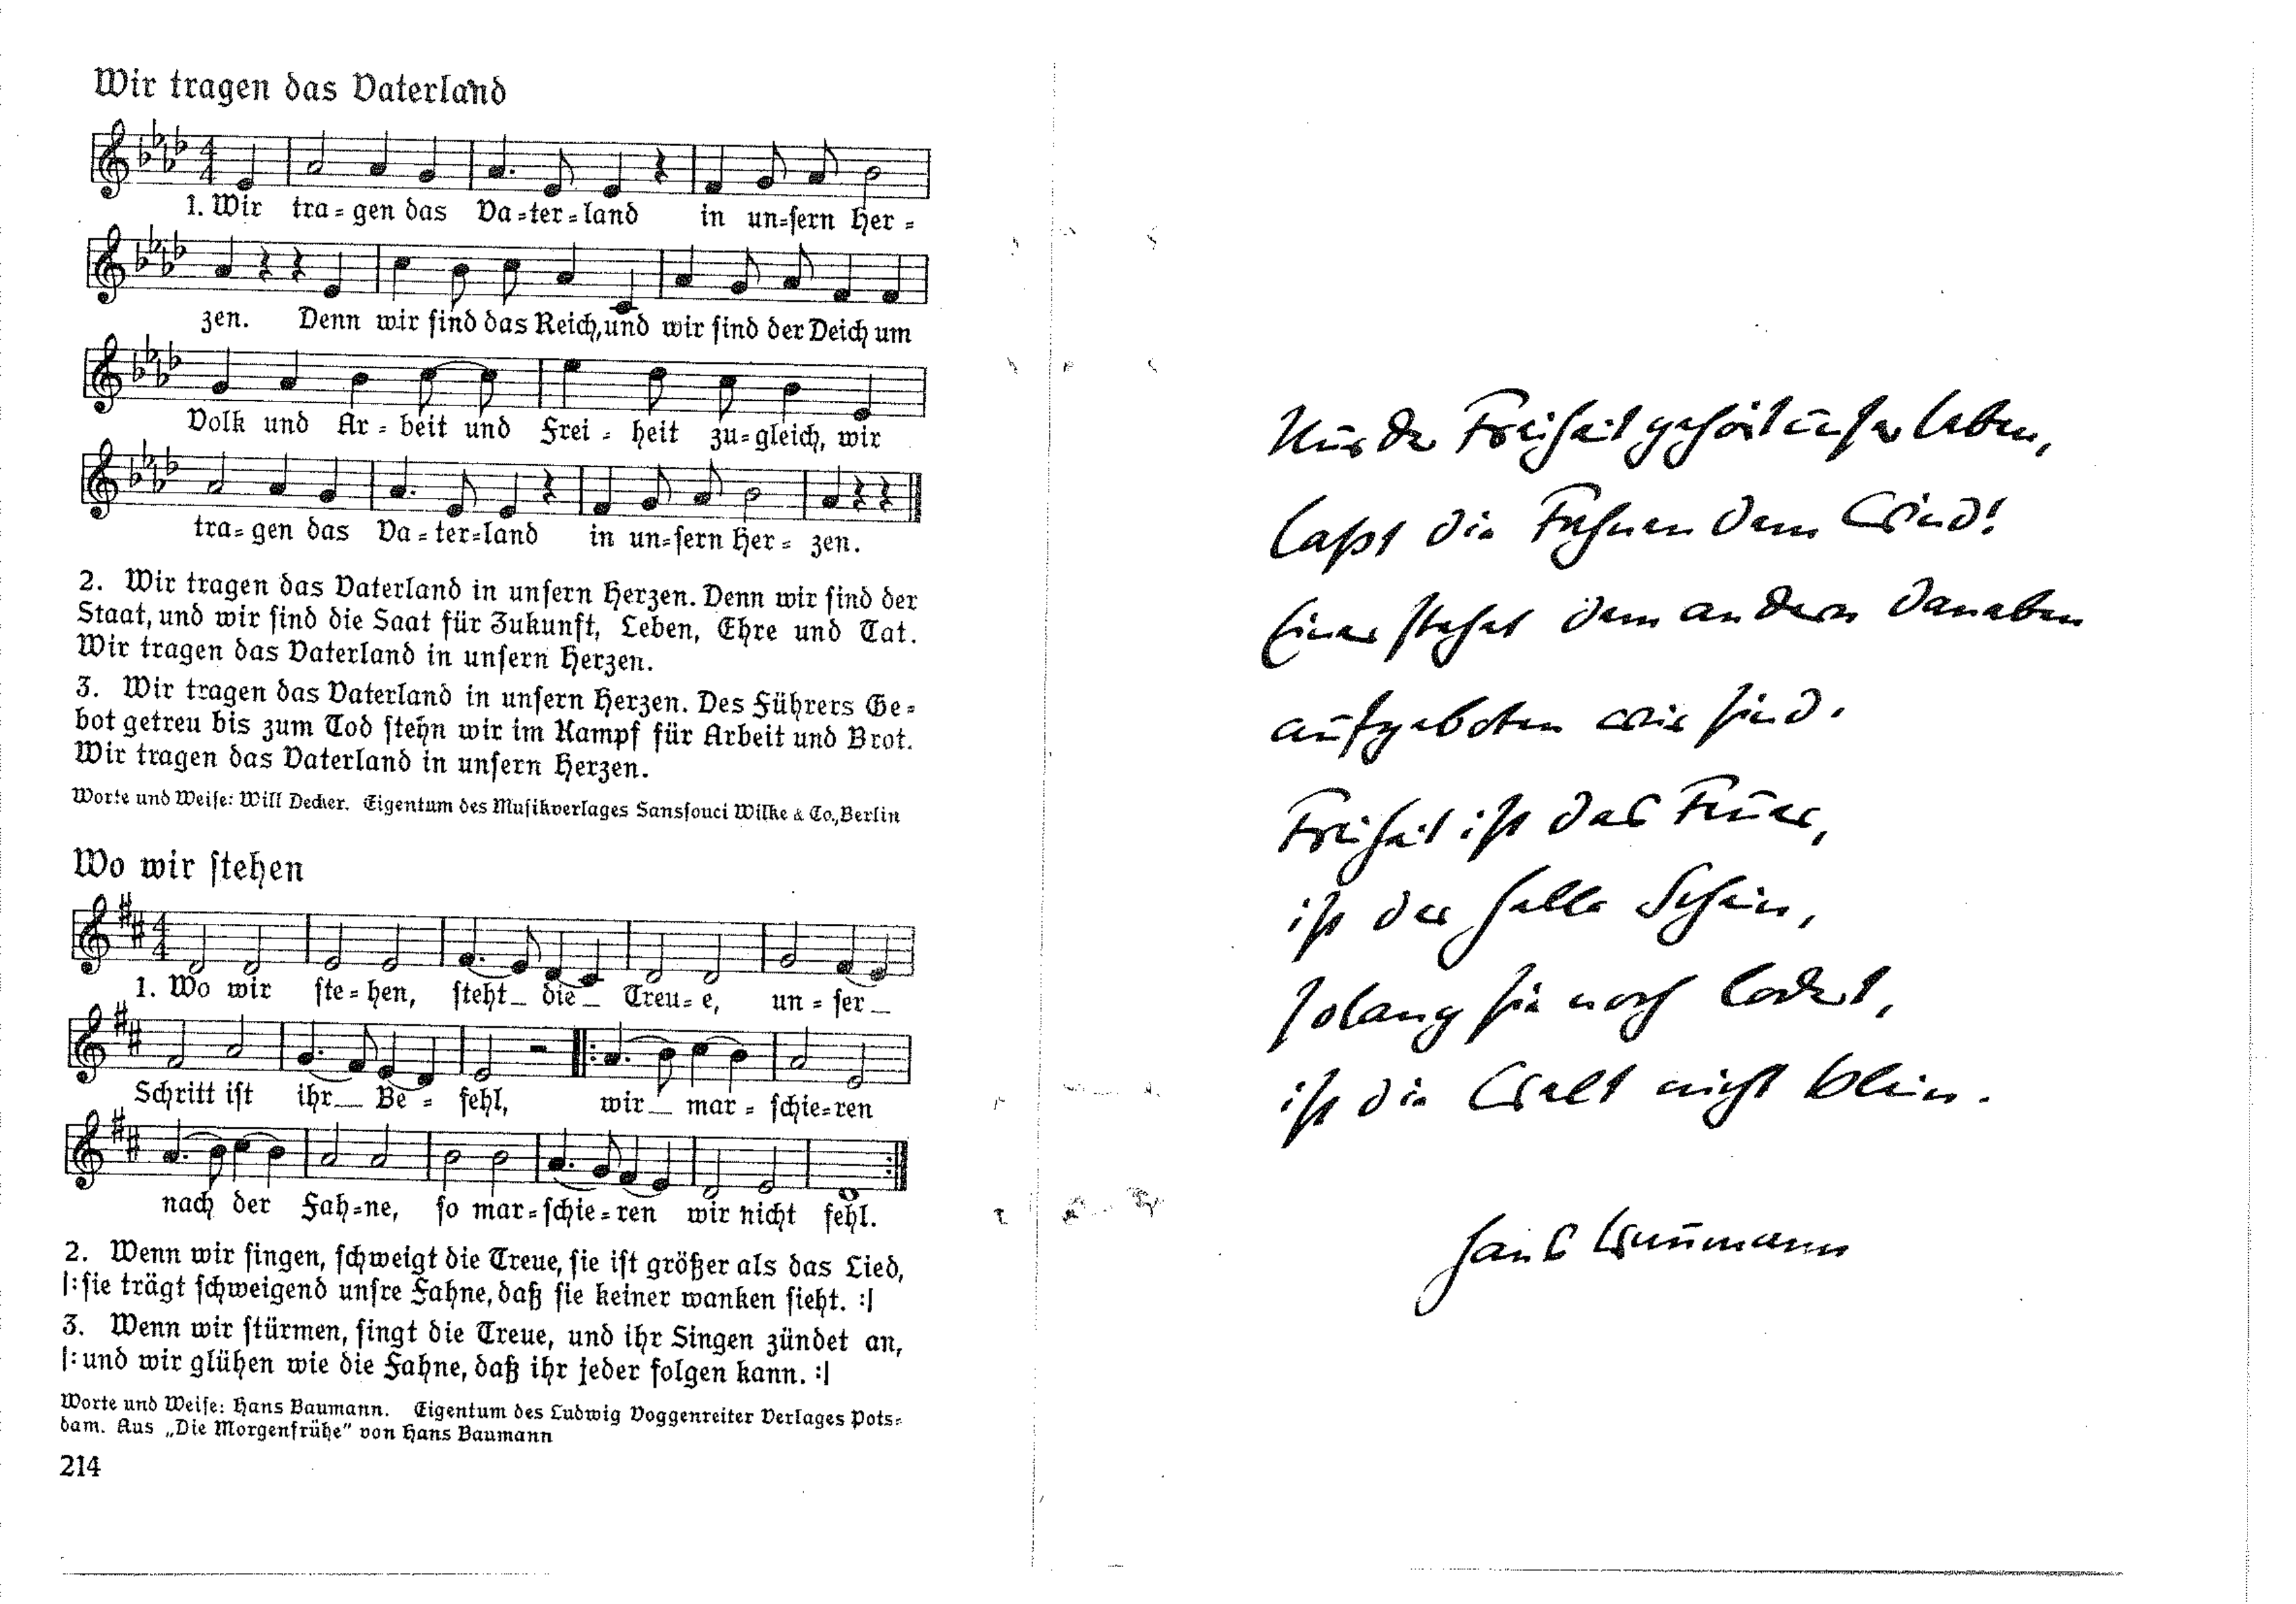 Wir tragen das Vaterland
1. Wir tra=gen das Va=ter=land in un=sern Her=
zen. Denn wir sind das Reich, und wir sind der Deich um
Volk und Ar=beit und Frei=heit zu=gleich, wir
tra=gen das Va=ter=land in un=sern Her=zen.
2. Wir tragen das Vaterland in unsern Herzen. Denn wir sind der
Staat, und wir sind die Saat für Zukunft, Leben, Ehre und Tat.
Wir tragen das Vaterland in unsern Herzen.
3. Wir tragen das Vaterland in unsern Herzen. Des Führers Ge=
bot getreu bis zum Tod stehn wir im Kampf für Arbeit und Brot.
Wir tragen das Vaterland in unsern Herzen.
Worte und Weise: Will Decker. Eigentum des Musikverlages Sanssouci Wilke & Co., Berlin
Wo wir stehen
1. Wo wir ste=hen, steht_ die_ Treu=e, un=ser_
Schritt ist ihr_ Be=fehl, wir_ mar=schie=ren
nach der Fah=ne, so mar=schie=ren wir nicht fehl.
2. Wenn wir singen, schweigt die Treue, sie ist größer als das Lied,
|: sie trägt schweigend unsre Fahne, daß sie keiner wanken sieht. :|
3. Wenn wir stürmen, singt die Treue, und ihr Singen zündet an,
|: und wir glühen wie die Fahne, daß ihr jeder folgen kann. :|
Worte und Weise: Hans Baumann. Eigentum des Ludwig Voggenreiter Verlages Pots=
dam. Aus „Die Morgenfrühe" von Hans Baumann
214
Nur der Freiheit gehört unser Leben,
laßt die Fahnen dem Wind!
Einer stehet dem andern daneben
aufgeboten wir sind.
Freiheit ist das Feuer,
ist der helle Schein,
solang sie noch lodert,
ist die Welt nicht klein.
Hans Baumann